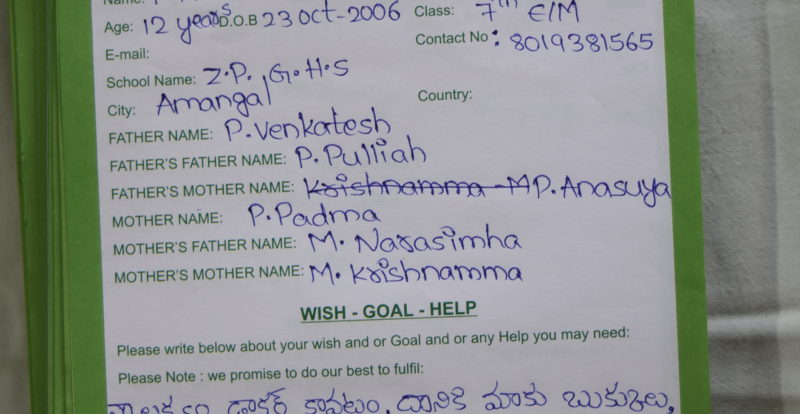 Name:
Age: 12 years D.O.B 23 Oct-2006 Class: 7th E/M
E-mail: Contact No: 8019381565
School Name: Z.P. G.H.S
City: Amangal Country:
FATHER NAME: P. Venkatesh
FATHER'S FATHER NAME: P. Pulliah
FATHER'S MOTHER NAME: Krishnamma M P. Anasuya
MOTHER NAME: P. Padma
MOTHER'S FATHER NAME: M. Narasimha
MOTHER'S MOTHER NAME: M. Krishnamma
WISH - GOAL - HELP
Please write below about your wish and or Goal and or any Help you may need:
Please Note : we promise to do our best to fulfil:
డాక్టర్ కావటం, దానికి మాకు బుక్కులు,